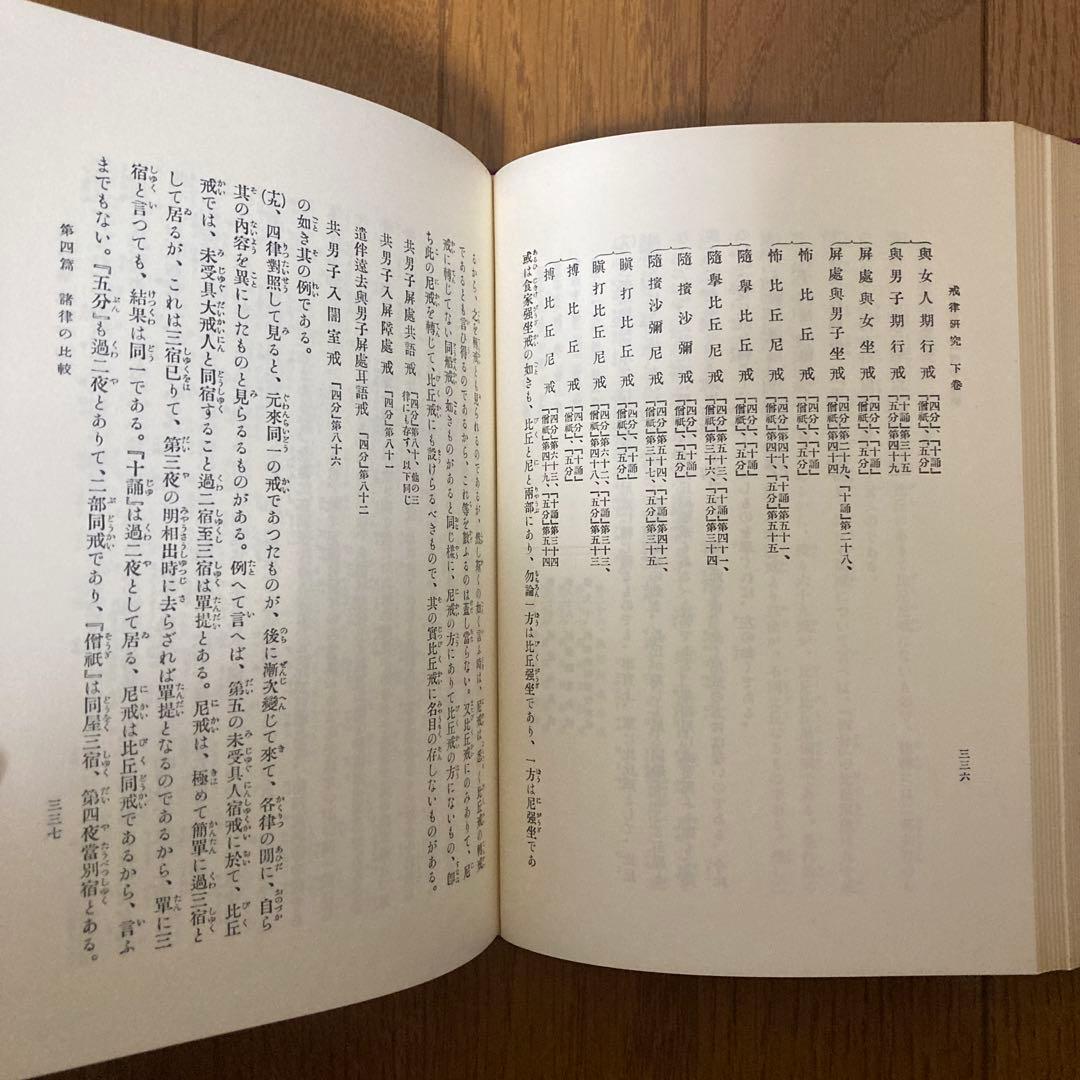 戒律研究 下卷
三三六
與女人期行戒 「四分」、「十誦」
「僧祇」、「五分」
與男子期行戒 「十誦」第三十五
「五分」第四十九
屏處與女坐戒 「四分」、「十誦」
「僧祇」、「五分」
屏處與男子坐戒 「四分」第二十九、「十誦」第二十八、
「僧祇」第四十四
怖比丘戒 「四分」、「十誦」
「僧祇」、「五分」
怖比丘尼戒 「十誦」第五十一、
「五分」第五十五
隨擧比丘戒 「四分」、「十誦」
「僧祇」、「五分」
隨擧比丘尼戒 「四分」第五十三、「十誦」第四十一、
「僧祇」第三十六、「五分」第三十四
隨擯沙彌戒 「四分」、「十誦」
「僧祇」、「五分」
隨擯沙彌尼戒 「四分」第五十四、「十誦」第四十二、
「僧祇」第三十七、「五分」第三十五
瞋打比丘戒 「四分」、「十誦」
「僧祇」、「五分」
瞋打比丘尼戒
「僧祇」第四十八、「五分」第五十三
搏比丘戒 「四分」、「十誦」
「僧祇」、「五分」
搏比丘尼戒 「四分」第六十三、「十誦」第三十四
「僧祇」第四十九、「五分」第五十四
或は食家强坐戒の如きも、比丘と尼と兩部にあり、勿論一方は比丘强坐であり、一方は尼强坐であ
るから、之を轉戒とも見られるのであるが、然し斯くの如く言ふ時は、尼戒は、悉く比丘戒の轉戒
であるとも言ひ得るのであるから、これ等を數ふるのは蓋し當らない。又比丘戒にのみありて、尼
戒に轉じてない同婬戒の如きものがあると同じ樣に、尼戒の方にありて比丘戒の方にないもの、卽
ち此の尼戒を轉じて、比丘戒にも設けらるべきもので、其の實比丘戒に名目の存しないものがある。
共男子屏處共語戒 「四分」第八十、他の三
律に存す、以下同じ
共男子入屏障處戒 「四分」第八十一
遣伴遠去與男子屏處耳語戒 「四分」第八十二
共男子入闇室戒 「四分」第八十六
の如き其の例である。
四律對照して見ると、元來同一の戒であつたものが、後に漸次變じて來て、各律の間に、自ら
其の內容を異にしたものと見らるるものがある。例へて言へば、第五の未受具人宿戒に於て、比丘
戒では、未受具大戒人と同宿すること過二宿至三宿は單提とある。尼戒は、極めて簡單に過三宿と
して居るが、これは三宿已りて、第三夜の明相出時に去らざれば單提となるのであるから、單に三
宿と言つても、結果は同一である。『十誦』は過二夜として居る、尼戒は比丘同戒であるから、言ふ
までもない。『五分』も過二夜とありて、二部同戒であり、『僧祇』は同屋三宿、第四夜當別宿とある。
第四篇 諸律の比較
三三七